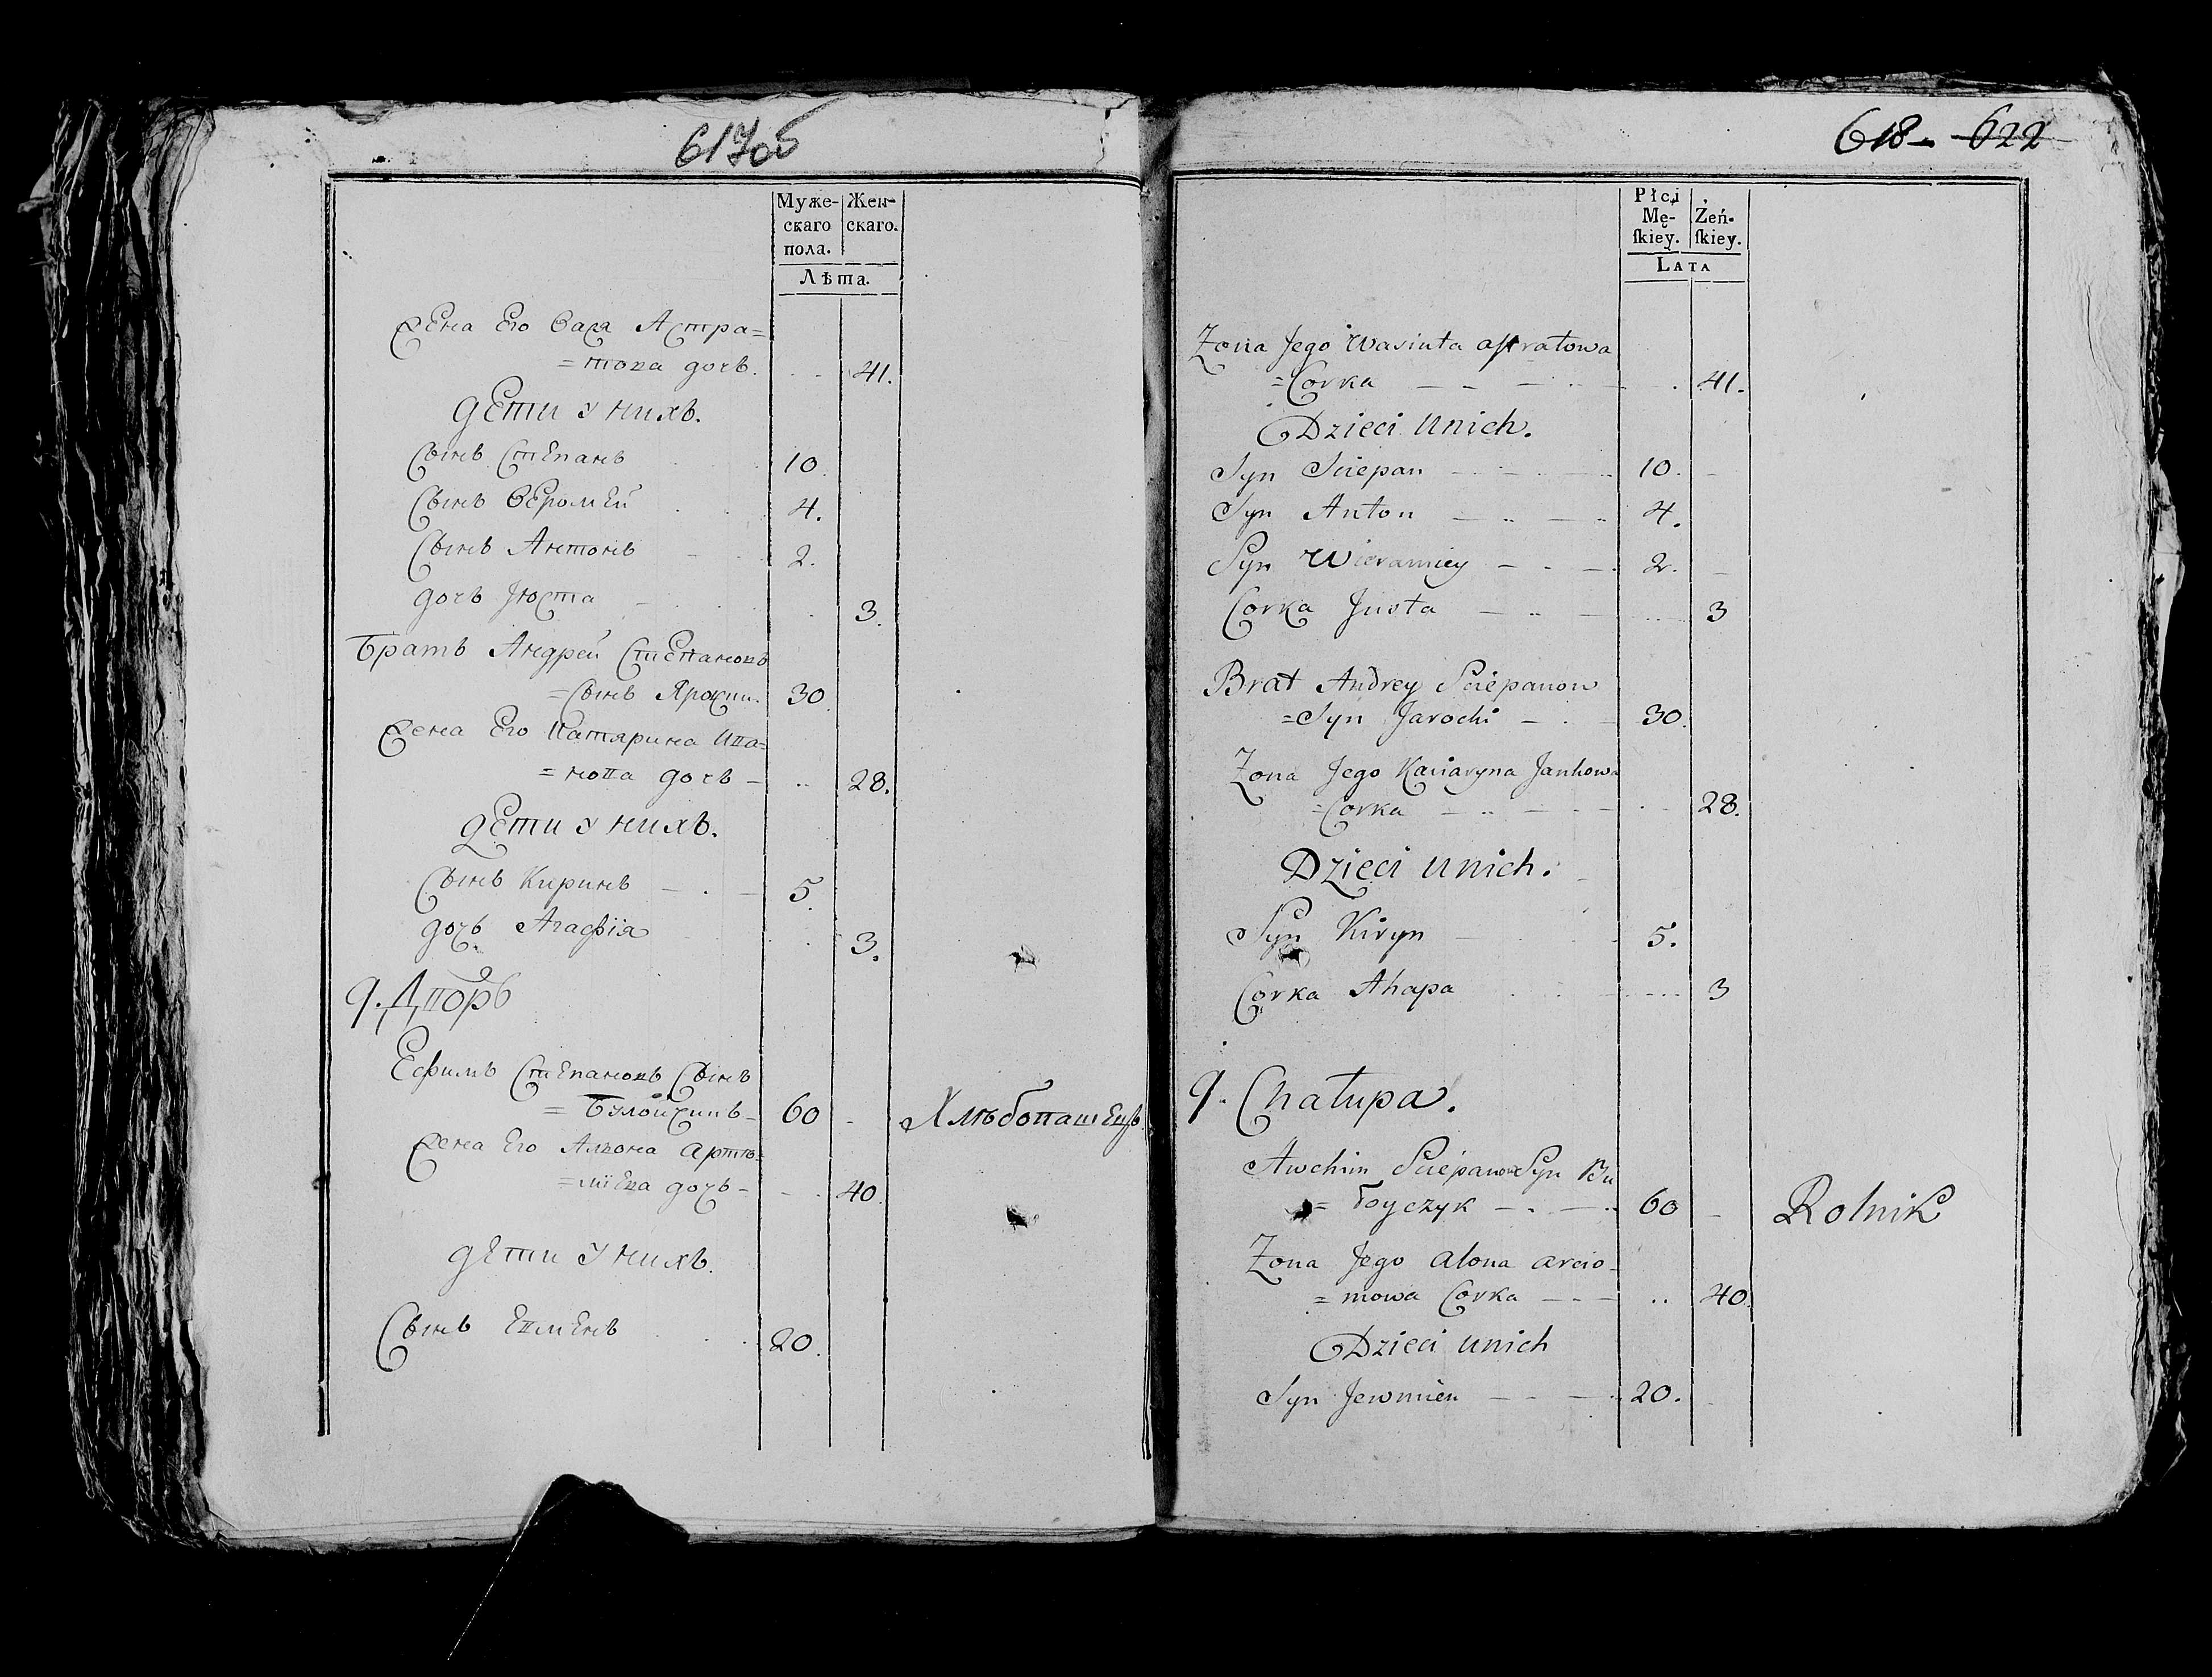 617об
Муже-
скаго
пола.
Жен-
скаго.
Лѣта.
Жена Его Вася Астра=
=това дочь. 41.
дети У нихъ.
Сынъ Степанъ 10.
Сынъ Веромей 4.
Сынъ Антонъ 2.
дочь Юста 3.
Братъ Андрей Степановъ
=Сынъ 30.
Жена Его Катярина Ива=
=нова дочь 28.
дети У нихъ.
Сынъ Киринъ 5.
дочь Агафія 3.
9. Дворъ
Ефимъ Степановъ Сынъ
= 60 Хлѣбопашецъ
Жена Его Алиона Артю=
=міева дочь 40.
дети У нихъ.
Сынъ Евменъ 20.
618 - 622
Płci
Mę-
ſkiey.
Żeń-
ſkiey.
LATA
Zona Jego Wasiuta astratowa
=Corka 41.
Dzieci Unich.
Syn Sciepan 10.
Syn Anton 4.
Syn Wieramiey 2.
Corka Justa 3
Brat Andrey Sciepanow
=Syn Jarocki 30.
Zona Jego Kaciaryna Jankowa
=Corka 28.
Dzieci Unich.
Syn Kiryn 5.
Corka Ahapa 3
9. Chałupa.
Awchim Sciepanow Syn Bu
= łoyczyk 60 Rolnik
Zona Jego alona arcio-
= mowa Corka 40.
Dzieci Unich
Syn Jewmien 20.